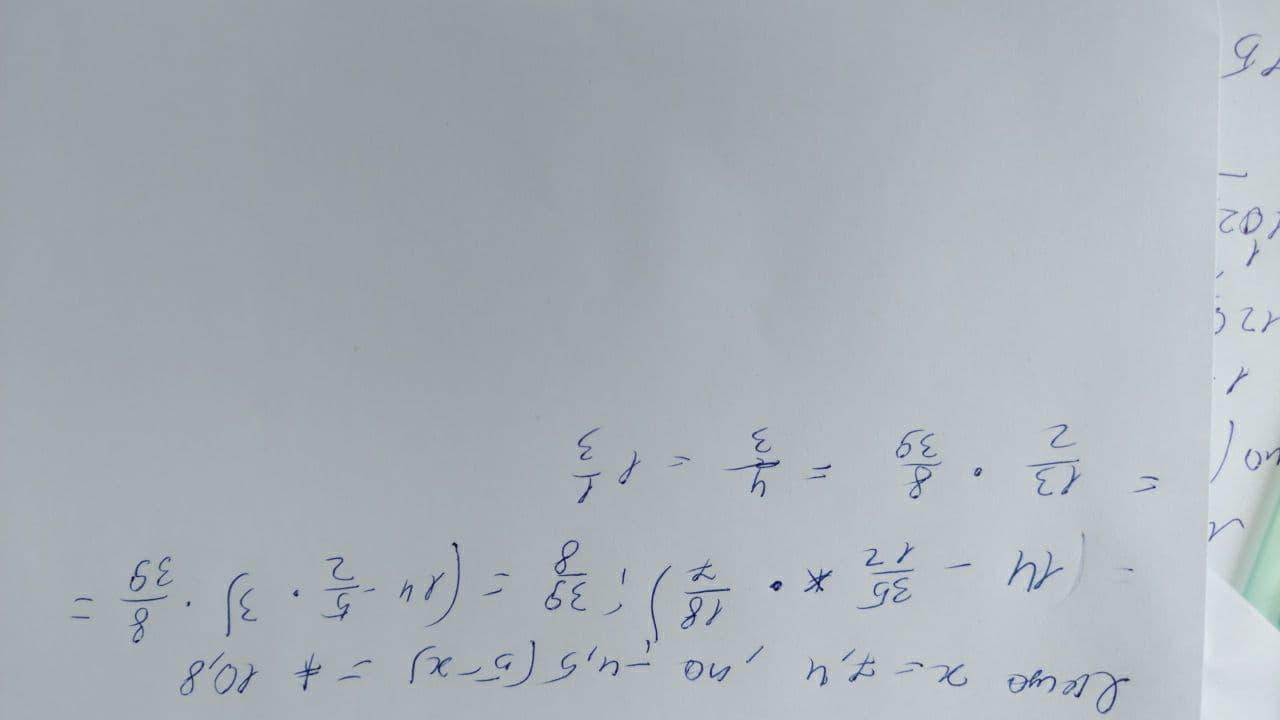 Якщо x = 7,4 , то -4,5 (5-x) = * 10,8
= (14 - 35/12 * · 18/7) : 39/8 = (14 - 5/2 · 3) · 8/39 =
= 13/2 · 8/39 = 4/3 = 1 1/3